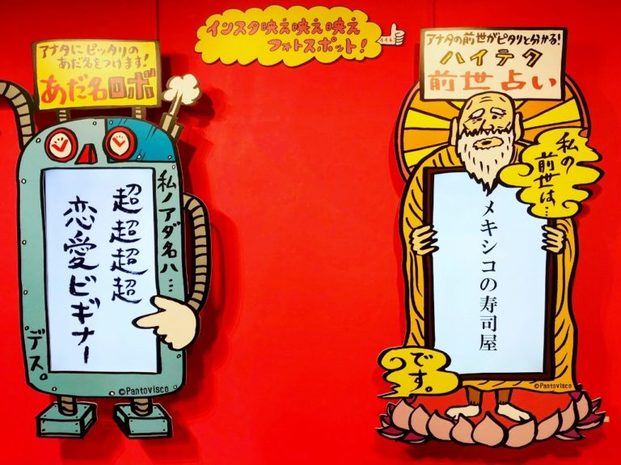 インスタ映え映え映え
フォトスポット!
アナタにピッタリの
あだ名をつけます!
あだ名ロボ
私ノアダ名ハ…
超超超超
恋愛ビギナー
デス。
©Pantovisco
アナタの前世がピタリと分かる!
ハイテク
前世占い
私の
前世は…
メキシコの寿司屋
です。
©Pantovisco